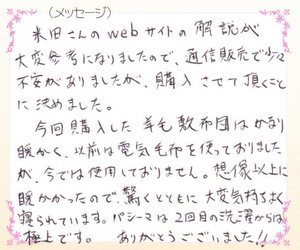 (メッセージ)
米田さんのwebサイトの解説が
大変参考になりましたので、通信販売で少々
不安がありましたが、購入させて頂くこと
に決めました。
今回購入した羊毛敷布団はかなり
暖かく、以前は電気毛布を使っておりました
が、今では使用しておりません。想像以上に
暖かかったので、驚くとともに大変気持ちよく
寝られています。パシーマは2回目の洗濯からは
極上です。ありがとうございました!!